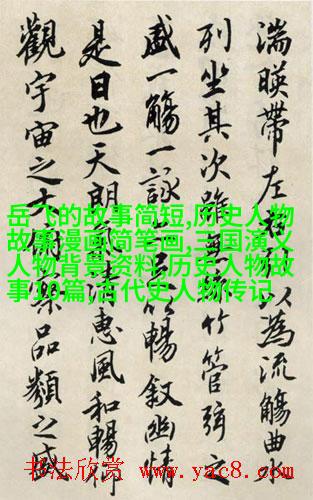 湍暎帶左右以為流觴曲
列坐其次雖無竹管弦之
盛一觴一詠足以暢敘幽情
是日也天朗氣清惠風和暢仰
觀宇宙之大俯察品類之盛
岳飞的故事简短,历史人物
故事漫画简笔画,三国演义
人物背景资料,历史人物故
事10篇,古代史人物传记
书法欣赏 www.yac8.com